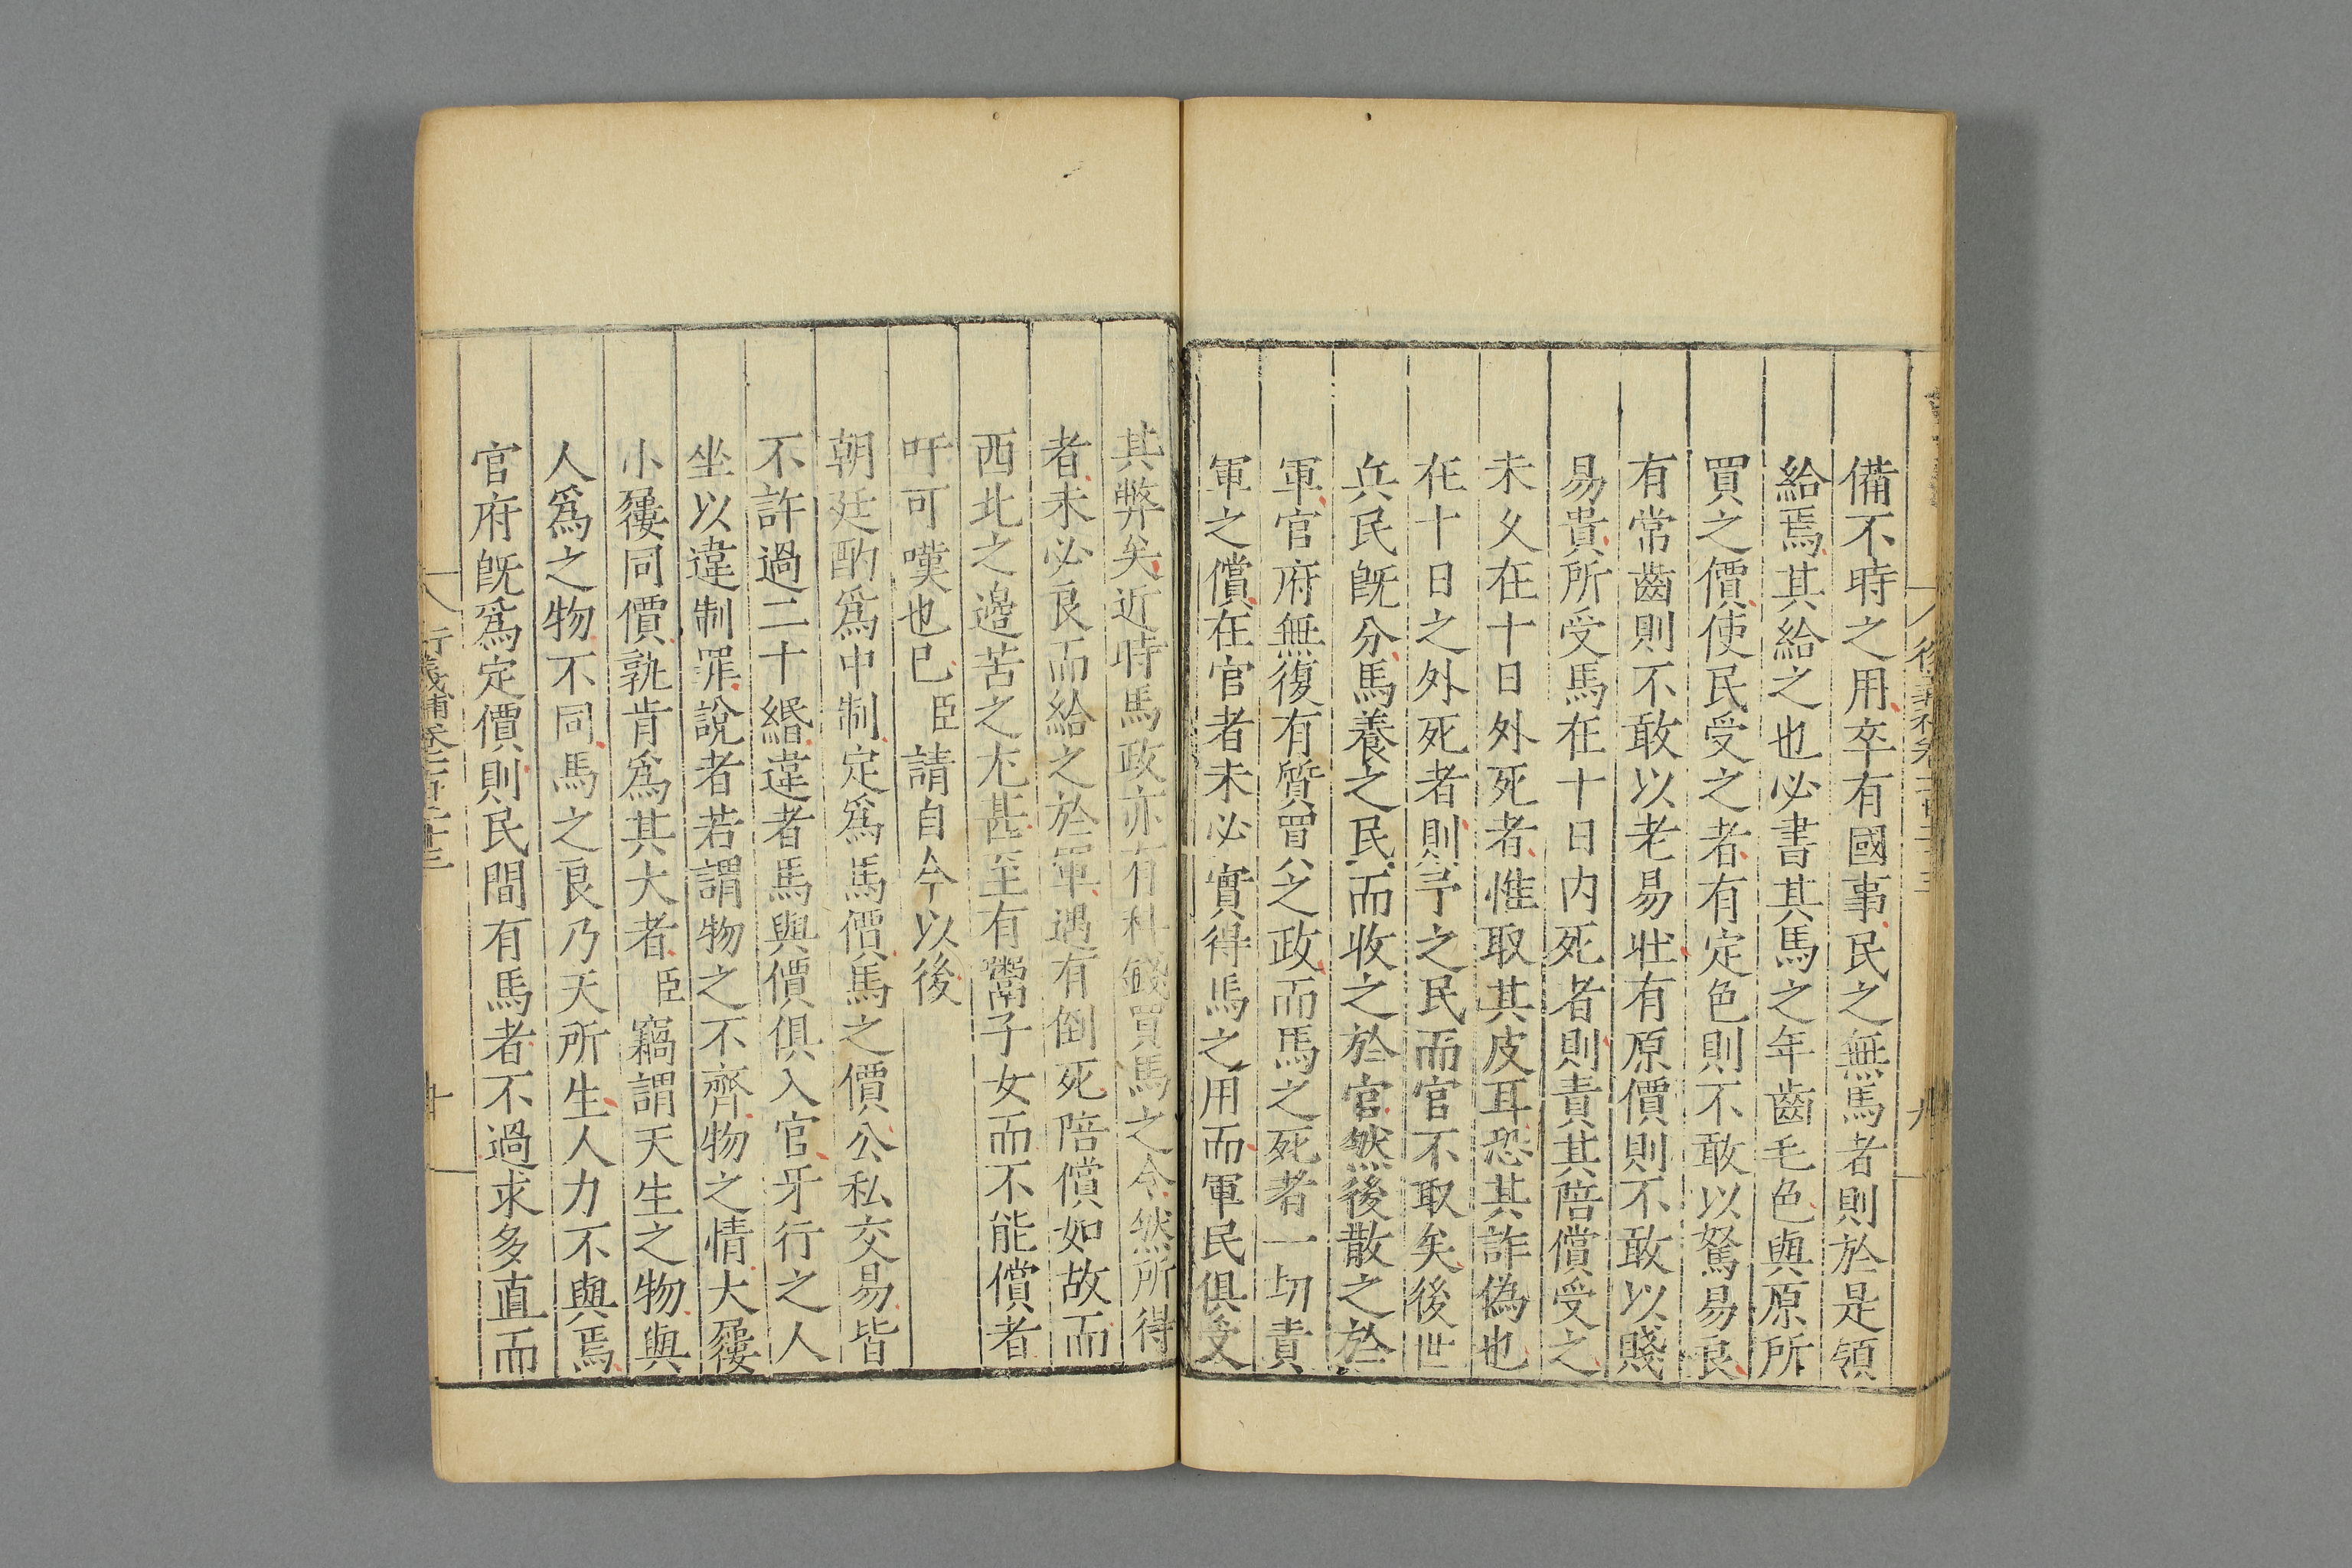 備不時之用卒有國事民之無馬者則於是領
給焉其給之也必書其馬之年齒毛色與原所
買之價使民受之者有定色則不敢以駑易良
有常齒則不敢以老易壯有原價則不敢以賤
易貴所受馬在十日内死者則責其陪償受之
未乆在十日外死者惟取其皮耳恐其詐偽也
在十日之外死者則予之民而官不取矣後世
兵民既分馬養之民而收之於官然後散之於
軍官府無復有質買之政而馬之死者一切責
軍之償在官者未必實得馬之用而軍民俱受
其弊矣近時馬政亦有科錢買馬之令然所得
者未必良而給之於軍遇有倒死陪償如故而
西北之邉苦之尤甚至有鬻子女而不能償者
吁可嘆也已臣請自今以後
朝廷酌爲中制定爲馬價馬之價公私交易皆
不許過二十緡違者馬與價俱入官牙行之人
坐以違制罪說者若謂物之不齊物之情大屨
小屨同價孰肯爲其大者臣竊謂天生之物與
人爲之物不同馬之良乃天所生人力不與焉
官府既爲定價則民間有馬者不過求多直而
行義補卷一百二十三
十